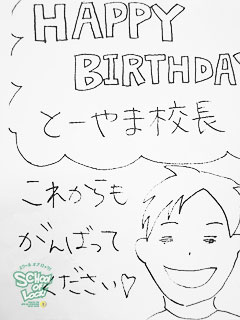 HAPPY
BIRTHDAY
とーやま校長
これからも
がんばって
ください♡
SCHOOL
OF
LOCK!